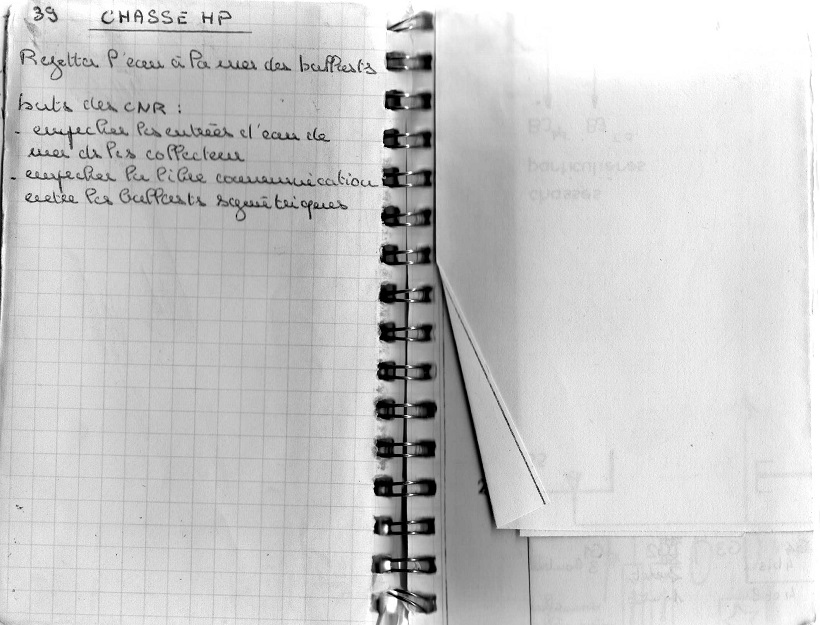 39 CHASSE HP
Rejetter l'eau à la mer des ballasts
buts des CNR :
- empecher les entrées d'eau de
mer ds les collecteur
- empecher la libre communication
entre les ballasts symétriques
particulières
chasses